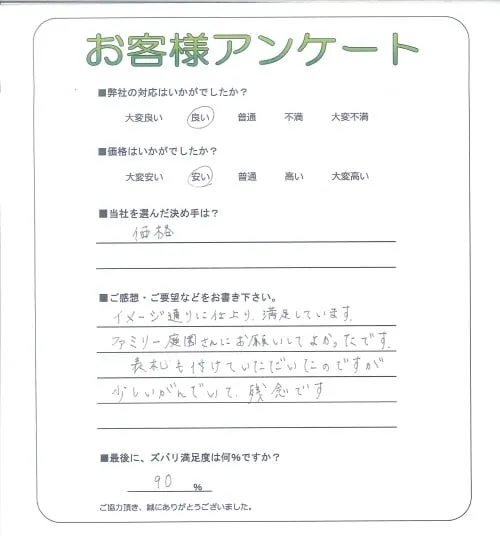 お客様アンケート
■弊社の対応はいかがでしたか？
大変良い 良い 普通 不満 大変不満
■価格はいかがでしたか？
大変安い 安い 普通 高い 大変高い
■当社を選んだ決め手は？
価格
■ご感想・ご要望などをお書き下さい。
イメージ通りに仕上り、満足しています。
ファミリー庭園さんにお願いしてよかったです。
表札も付けていただいたのですが
少しいがんでいて、残念です
■最後に、ズバリ満足度は何%ですか？
90 %
ご協力頂き、誠にありがとうございました。